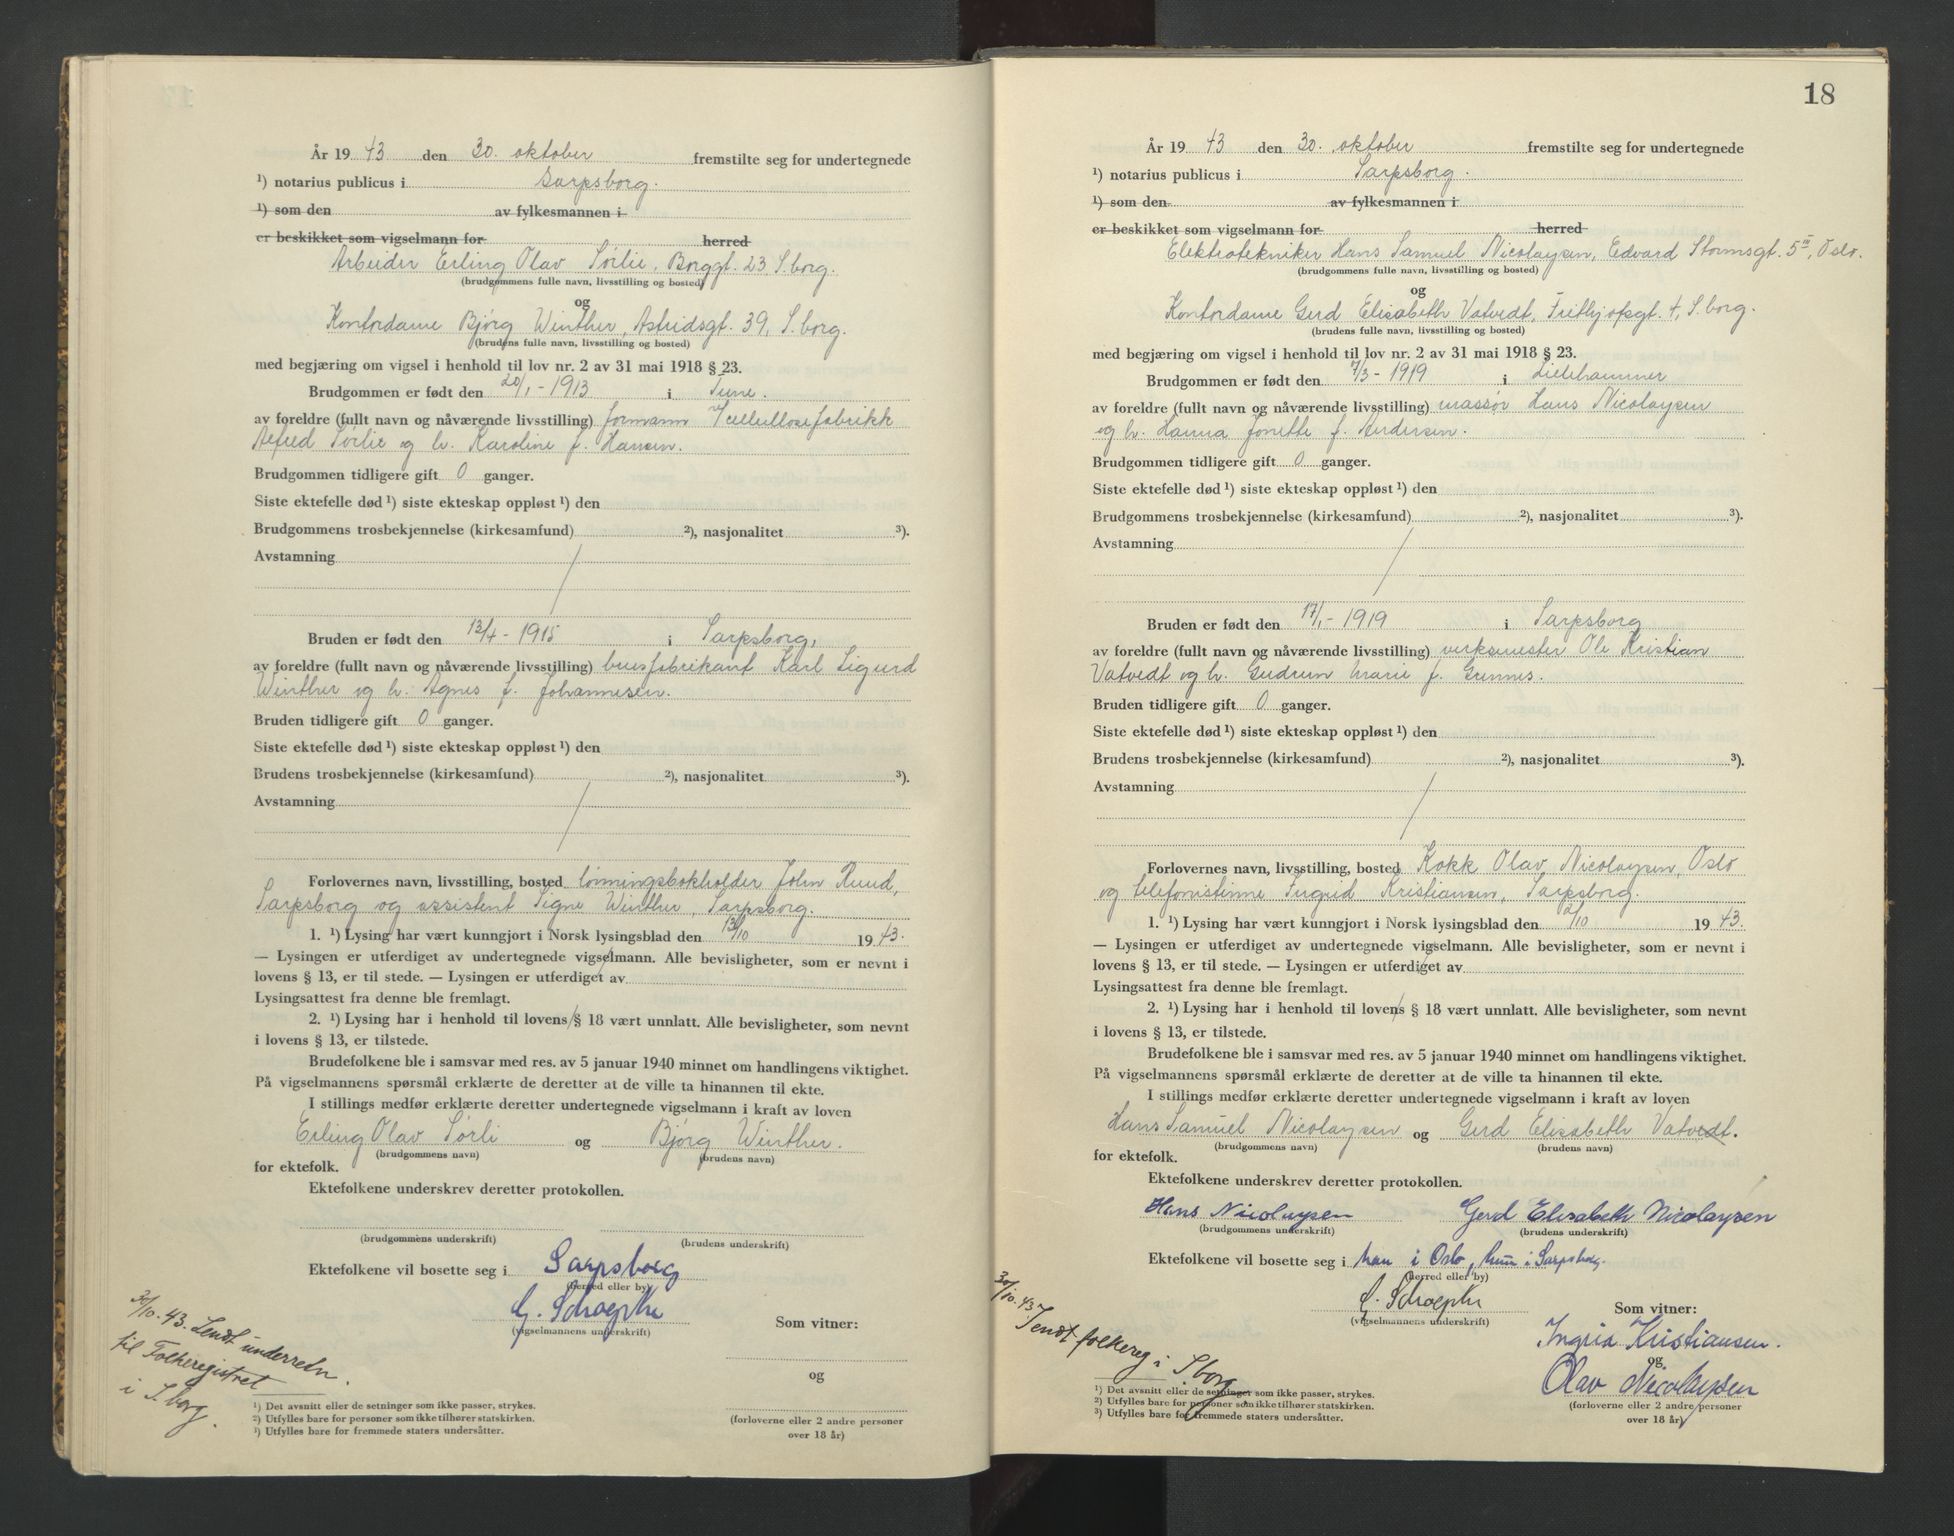 År 19 43 den 30. oktober fremstilte seg for undertegnede
¹) notarius publicus i Sarpsborg.
¹) som den av fylkesmannen i
er beskikket som vigselmann for herred
Arbeider Erling Olav Sørlie, Borggt. 23 S.borg.
(brudgommens fulle navn, livsstilling og bosted)
og
Kontordame Bjørg Winther, Astridsgt. 39, S.borg.
(brudens fulle navn, livsstilling og bosted)
med begjæring om vigsel i henhold til lov nr. 2 av 31 mai 1918 § 23.
Brudgommen er født den 20/1 - 1913 i Tune.
av foreldre (fullt navn og nåværende livsstilling) formann v/cellulosefabrikk
Alfred Sørlie og h. Karoline f. Hansen.
Brudgommen tidligere gift 0 ganger.
Siste ektefelle død ¹) siste ekteskap oppløst ¹) den
Brudgommens trosbekjennelse (kirkesamfund) ²), nasjonalitet ³).
Avstamning
Bruden er født den 13/4 - 1915 i Sarpsborg,
av foreldre (fullt navn og nåværende livsstilling) brusfabrikant Karl Sigurd
Winther og h. Agnes f. Johannesen.
Bruden tidligere gift 0 ganger.
Siste ektefelle død ¹) siste ekteskap oppløst ¹) den
Brudens trosbekjennelse (kirkesamfund) ²), nasjonalitet ³).
Avstamning
Forlovernes navn, livsstilling, bosted lønningsbokholder John Ruud,
Sarpsborg og assistent Signe Winther, Sarpsborg.
1. ¹) Lysing har vært kunngjort i Norsk lysingsblad den 13/10 19 43.
— Lysingen er utferdiget av undertegnede vigselmann. Alle bevisligheter, som er nevnt i
lovens § 13, er til stede. — Lysingen er utferdiget av
Lysingsattest fra denne ble fremlagt.
2. ¹) Lysing har i henhold til lovens § 18 vært unnlatt. Alle bevisligheter, som nevnt
i lovens § 13, er tilstede.
Brudefolkene ble i samsvar med res. av 5 januar 1940 minnet om handlingens viktighet.
På vigselmannens spørsmål erklærte de deretter at de ville ta hinannen til ekte.
I stillings medfør erklærte deretter undertegnede vigselmann i kraft av loven
Erling Olav Sørli og Bjørg Winther.
(brudgommens navn) (brudens navn)
for ektefolk.
Ektefolkene underskrev deretter protokollen.
(brudgommens underskrift) (brudens underskrift)
Ektefolkene vil bosette seg i Sarpsborg
(herred eller by)
(vigselmannens underskrift)
Som vitner:
og
(forloverne eller 2 andre personer
over 18 år)
30/10.43. Sendt underretn.
til Folkeregistret
i S.borg.
¹) Det avsnitt eller de setninger som ikke passer, strykes.
²) Utfylles bare for personer som ikke tilhører statskirken.
³) Utfylles bare for fremmede staters undersåtter.
18
År 19 43 den 30. oktober fremstilte seg for undertegnede
¹) notarius publicus i Sarpsborg.
¹) som den av fylkesmannen i
er beskikket som vigselmann for herred
Elektrotekniker Hans Samuel Nicolaysen, Edvard Stormsgt. 5 III, Oslo.
(brudgommens fulle navn, livsstilling og bosted)
og
Kontordame Gerd Elisabeth Vatvedt, Frithjofsgt. 4, S.borg.
(brudens fulle navn, livsstilling og bosted)
med begjæring om vigsel i henhold til lov nr. 2 av 31 mai 1918 § 23.
Brudgommen er født den 7/3 - 1919 i Lillehammer
av foreldre (fullt navn og nåværende livsstilling) massør Hans Nicolaysen
og h. Hanna Jonette f. Andersen.
Brudgommen tidligere gift 0 ganger.
Siste ektefelle død ¹) siste ekteskap oppløst ¹) den
Brudgommens trosbekjennelse (kirkesamfund) ²), nasjonalitet ³).
Avstamning
Bruden er født den 17/1 - 1919 i Sarpsborg
av foreldre (fullt navn og nåværende livsstilling) verksmester Ole Kristian
Vatvedt og h. Gudrun Marie f. Grennes.
Bruden tidligere gift 0 ganger.
Siste ektefelle død ¹) siste ekteskap oppløst ¹) den
Brudens trosbekjennelse (kirkesamfund) ²), nasjonalitet ³).
Avstamning
Forlovernes navn, livsstilling, bosted Kokk Olav Nicolaysen, Oslo
og telefonistinne Ingrid Kristiansen, Sarpsborg.
1. ¹) Lysing har vært kunngjort i Norsk lysingsblad den 2/10 19 43.
— Lysingen er utferdiget av undertegnede vigselmann. Alle bevisligheter, som er nevnt i
lovens § 13, er til stede. — Lysingen er utferdiget av
Lysingsattest fra denne ble fremlagt.
2. ¹) Lysing har i henhold til lovens § 18 vært unnlatt. Alle bevisligheter, som nevnt
i lovens § 13, er tilstede.
Brudefolkene ble i samsvar med res. av 5 januar 1940 minnet om handlingens viktighet.
På vigselmannens spørsmål erklærte de deretter at de ville ta hinannen til ekte.
I stillings medfør erklærte deretter undertegnede vigselmann i kraft av loven
Hans Samuel Nicolaysen og Gerd Elisabeth Vatvedt.
(brudgommens navn) (brudens navn)
for ektefolk.
Ektefolkene underskrev deretter protokollen.
Hans Nicolaysen Gerd Elisabeth Nicolaysen
(brudgommens underskrift) (brudens underskrift)
Ektefolkene vil bosette seg i han i Oslo, hun i Sarpsborg.
(herred eller by)
(vigselmannens underskrift)
Som vitner:
Ingrid Kristiansen.
og
Olav Nicolaysen
(forloverne eller 2 andre personer
over 18 år)
30/10.43
Sendt folkereg i S.borg
¹) Det avsnitt eller de setninger som ikke passer, strykes.
²) Utfylles bare for personer som ikke tilhører statskirken.
³) Utfylles bare for fremmede staters undersåtter.